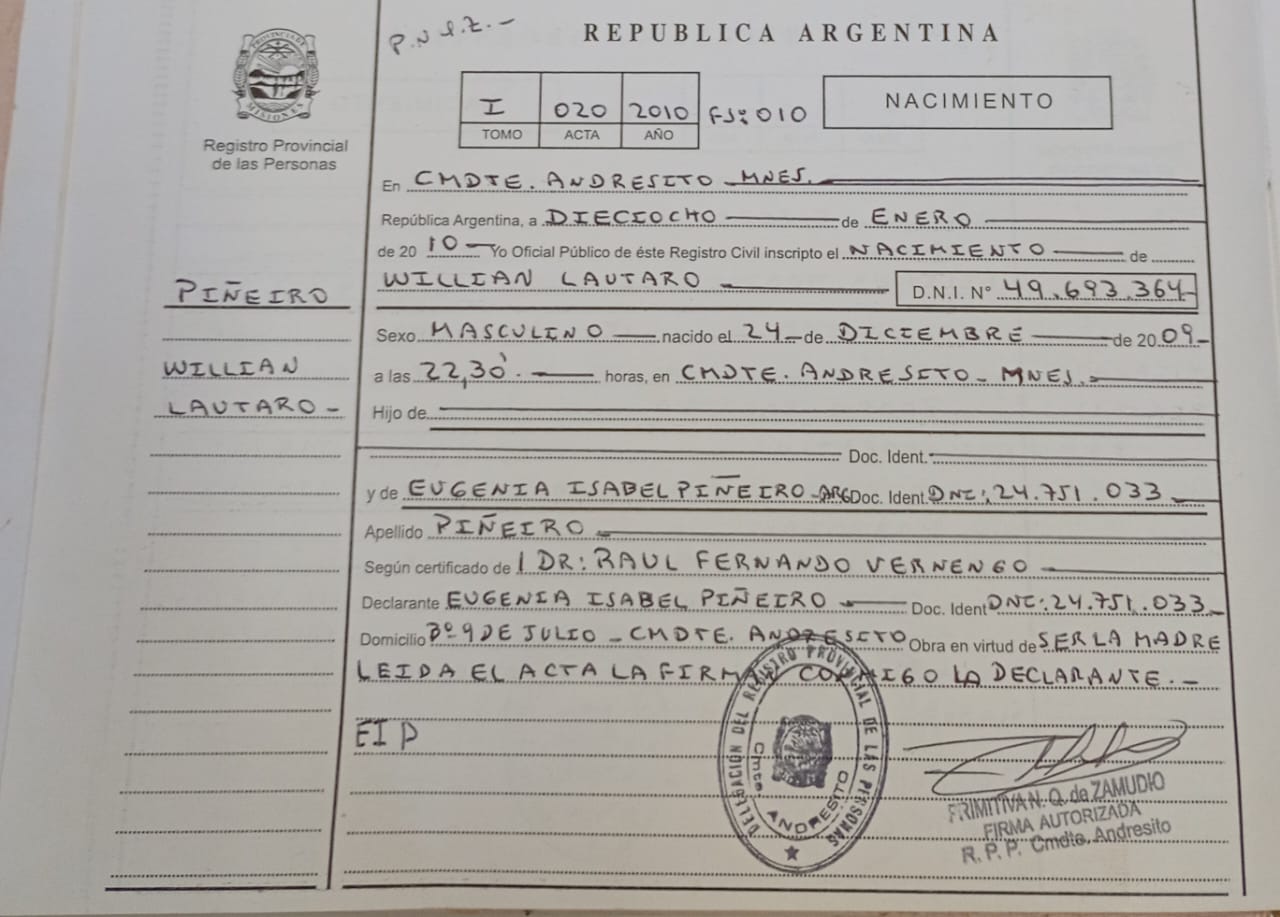 P.N.I.Z.-
REPUBLICA ARGENTINA
PROVINCIA DE MISIONES
Registro Provincial de las Personas
I 020 2010 FS: 010
TOMO ACTA AÑO
NACIMIENTO
En CMDTE. ANDRESITO - MNES.
República Argentina, a DIECIOCHO de ENERO
de 20 10 Yo Oficial Público de éste Registro Civil inscripto el NACIMIENTO de
WILLIAN LAUTARO D.N.I. N° 49.693.364
PIÑEIRO
WILLIAN
LAUTARO -
Sexo MASCULINO nacido el 24 de DICIEMBRE de 20 09
a las 22,30' horas, en CMDTE. ANDRESITO - MNES.
Hijo de
Doc. Ident.
y de EUGENIA ISABEL PIÑEIRO - ARG Doc. Ident. DNI: 24.751.033
Apellido PIÑEIRO
Según certificado de DR: RAUL FERNANDO VERNENGO
Declarante EUGENIA ISABEL PIÑEIRO Doc. Ident DNI: 24.751.033
Domicilio Bº 9 DE JULIO - CMDTE. ANDRESITO Obra en virtud de SER LA MADRE
LEIDA EL ACTA LA FIRMA CONMIGO LA DECLARANTE. -
EIP
DELEGACIÓN DEL REGISTRO PROVINCIAL DE LAS PERSONAS
Cmte. ANDRESITO
PRIMITIVA N. Q. de ZAMUDIO
FIRMA AUTORIZADA
R. P. P. Cmdte. Andresito